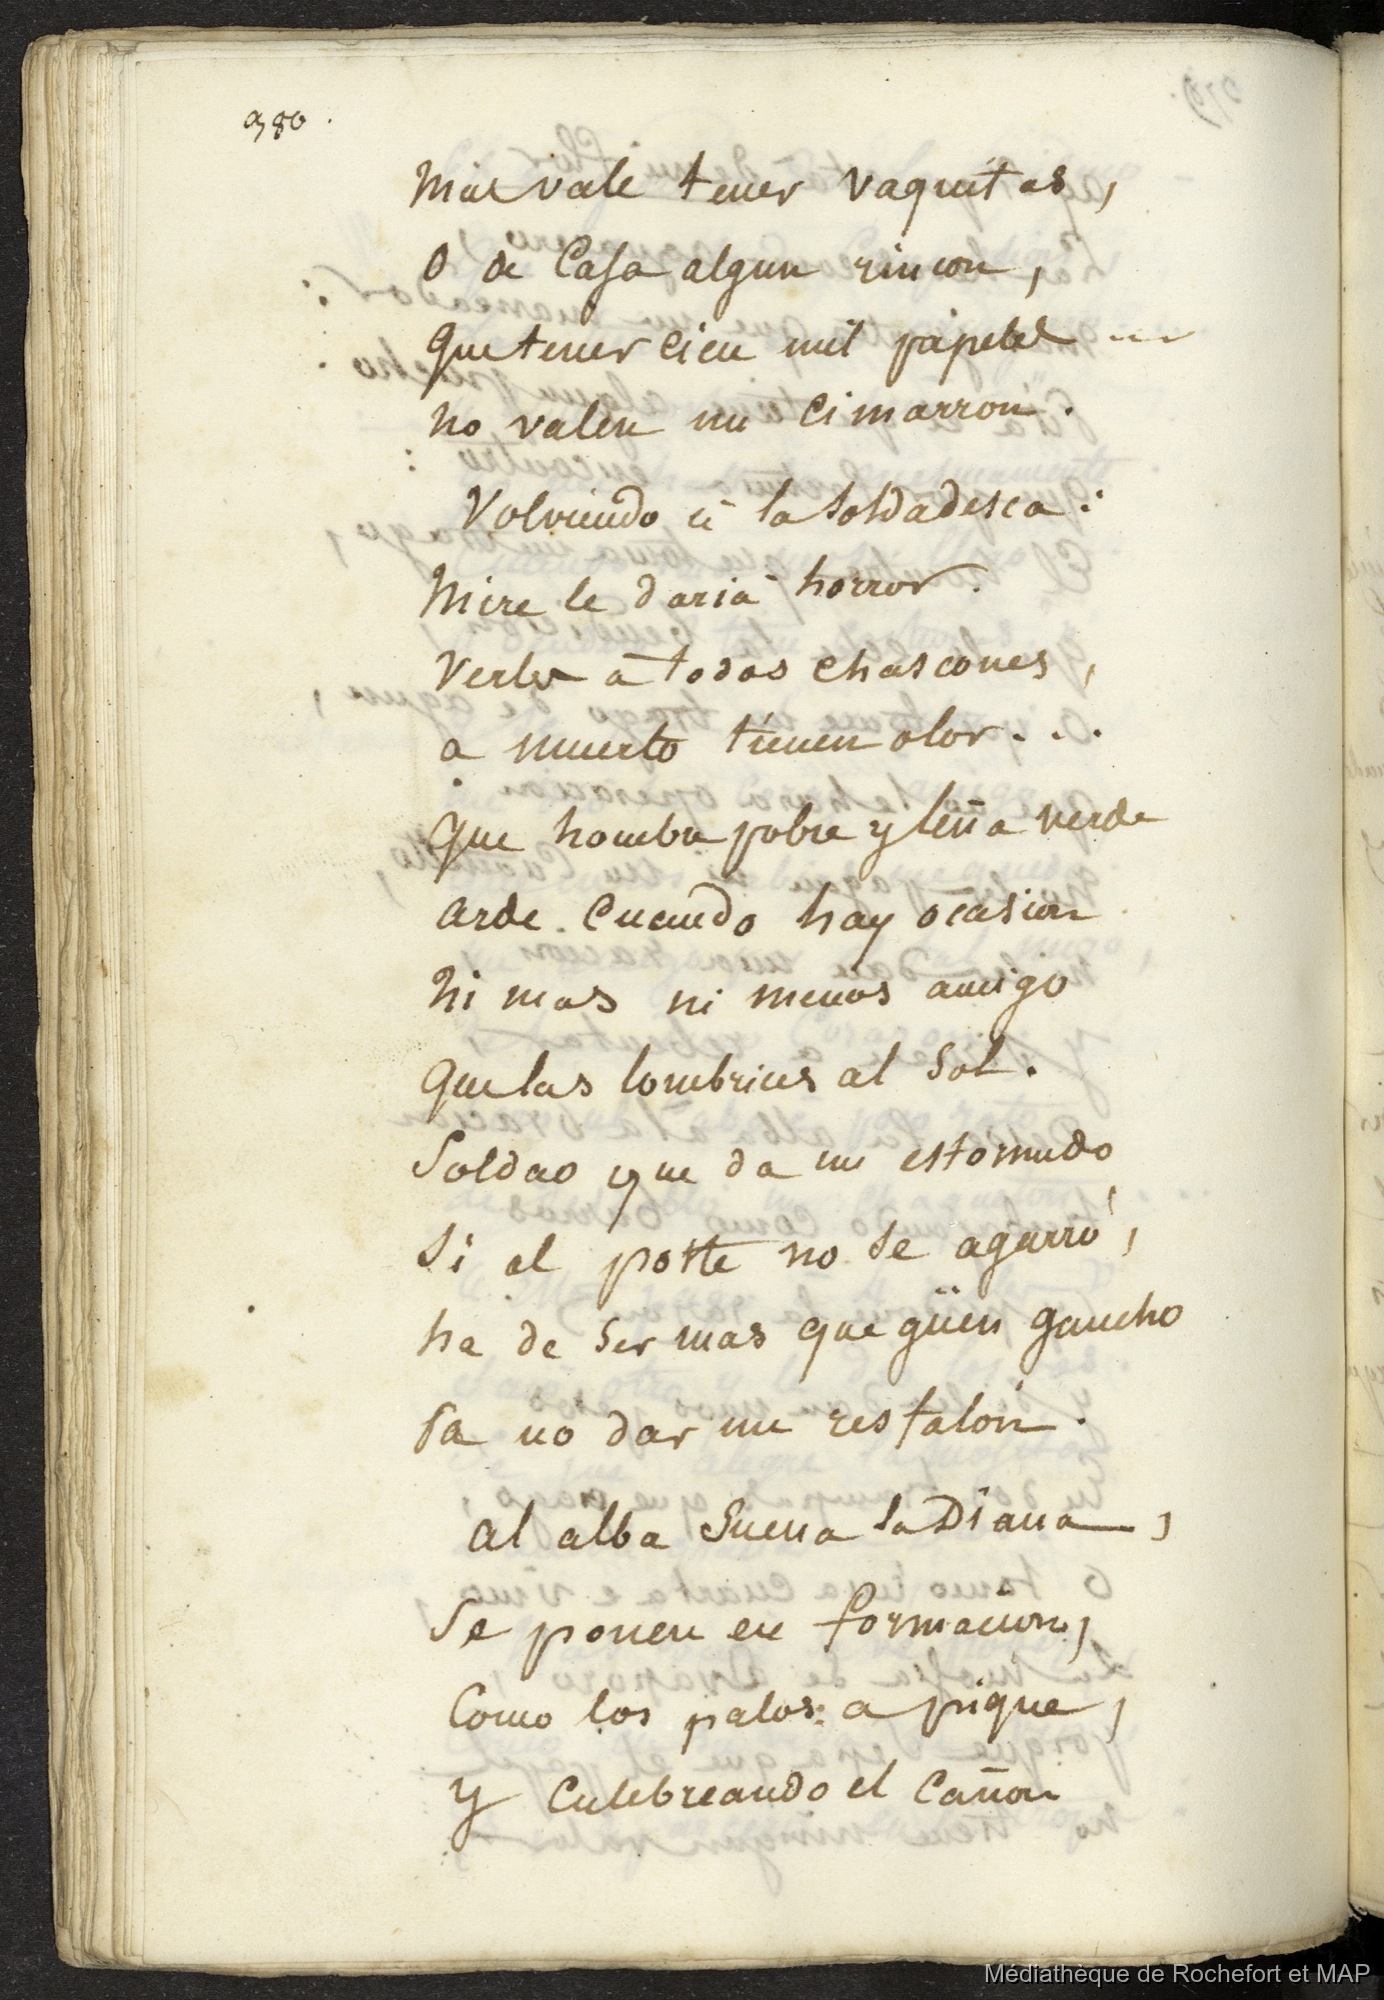 980.
Mas vale tener vaquitas,
O de Casa algun rincon,
que tener cien mil papeles
no valen un Cimarron.
Volviendo à la Soldadesca:
Mire le daria horror.
Verles à todos chascones,
a muerto tienen olor...
que hombre pobre y leña verde
arde Cuando hay ocasion
Ni mas ni menos amigo
que las lombrices al Sol.
Soldao que da un estornudo,
Si al poste no se agarró,
ha de Ser mas que güen gaucho
Pa no dar un resfalón.
Al alba Suena la Diana,
Se ponen en formacion,
Como los palos a pique,
Y Culebreando el Cañon
Médiathèque de Rochefort et MAP